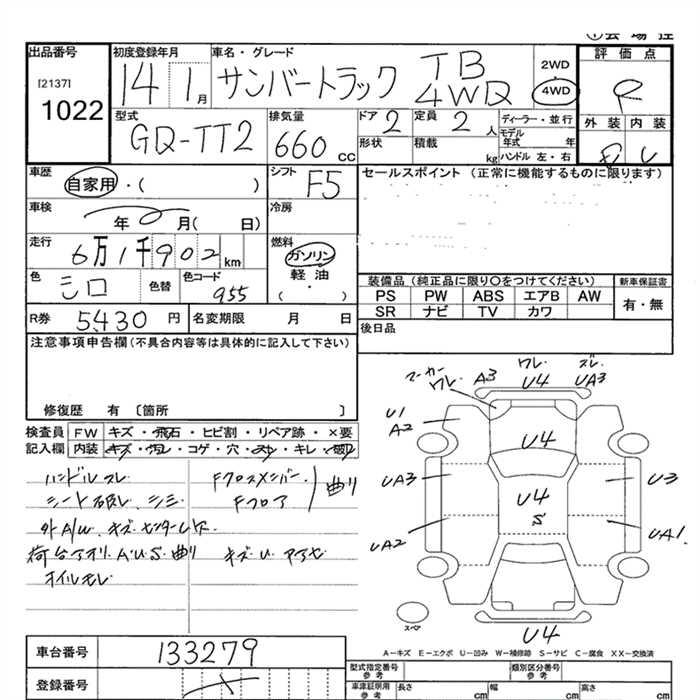 出品番号 初度登録年月 車名・グレード 2WD 評価点
[2137] 14 1月 サンバートラック TB 4WD 4WD R
1022
型式 排気量 ドア 定員 ディーラー・並行 外装 内装
GD-TT2 660 CC 2 2 人 モデル年式 年
形状 積載 kg ハンドル 左・右
車歴 シフト セールスポイント (正常に機能するものに限ります)
自家用・( ) F5
車検 年 月( 日) 冷房
走行 6万1千902km 燃料
ガソリン
軽油
・( )
色 シロ 色替 色コード 955
装備品 (純正品に限り〇をつけてください) 新車保証書
PS PW ABS エアB AW 有・無
SR ナビ TV カワ
R券 5430 円 名変期限 月 日 後日品
注意事項申告欄 (不具合内容等は具体的に記入して下さい)
修復歴 有 〔箇所 〕
検査員記入欄 FW キズ・飛石・ヒビ割・リペア跡・×要
内装 キズ・汚レ・コゲ・穴・スレ・キレ・
ハンドルスレ Fクロスメンバー 曲り
シート破レ、シミ Fフロア
外A/W、キズ
荷台アオリ、A、U、S、曲り キズ、U
オイルモレ
コーカーワレ A3 ワレ U4 ズレ UA3
U1
A2 U4
UA3 U4 U3
S
UA2 UA1
スペア U4
A-キズ E-エクボ U-凹み W-補修跡 S-サビ C-腐食 XX-交換済
車台番号 133279
登録番号
型式指定番号 参考 類別区分番号 参考
車庫証明用 参考 長さ cm 幅 cm 高さ cm